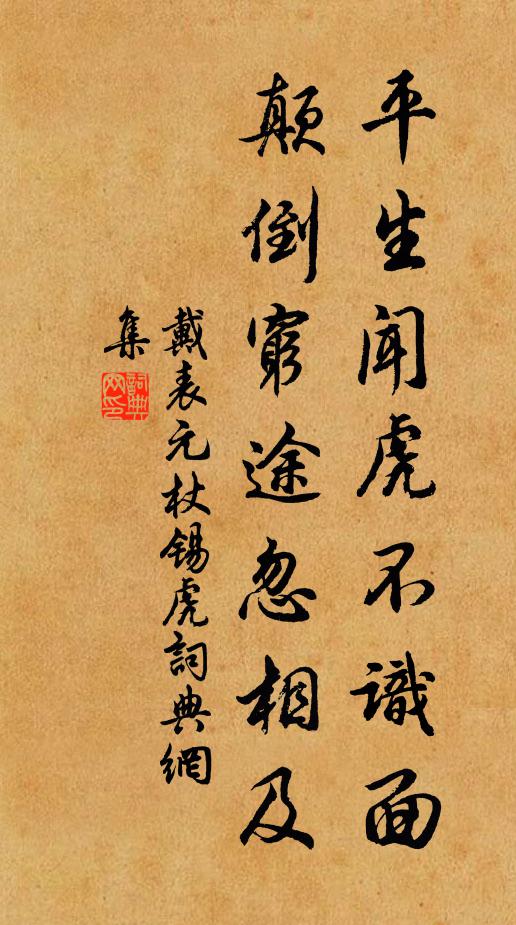 平生闻虎不識面
颠倒窮途忽相及
戴表元杖锡虎詞典網
集
詞典网印